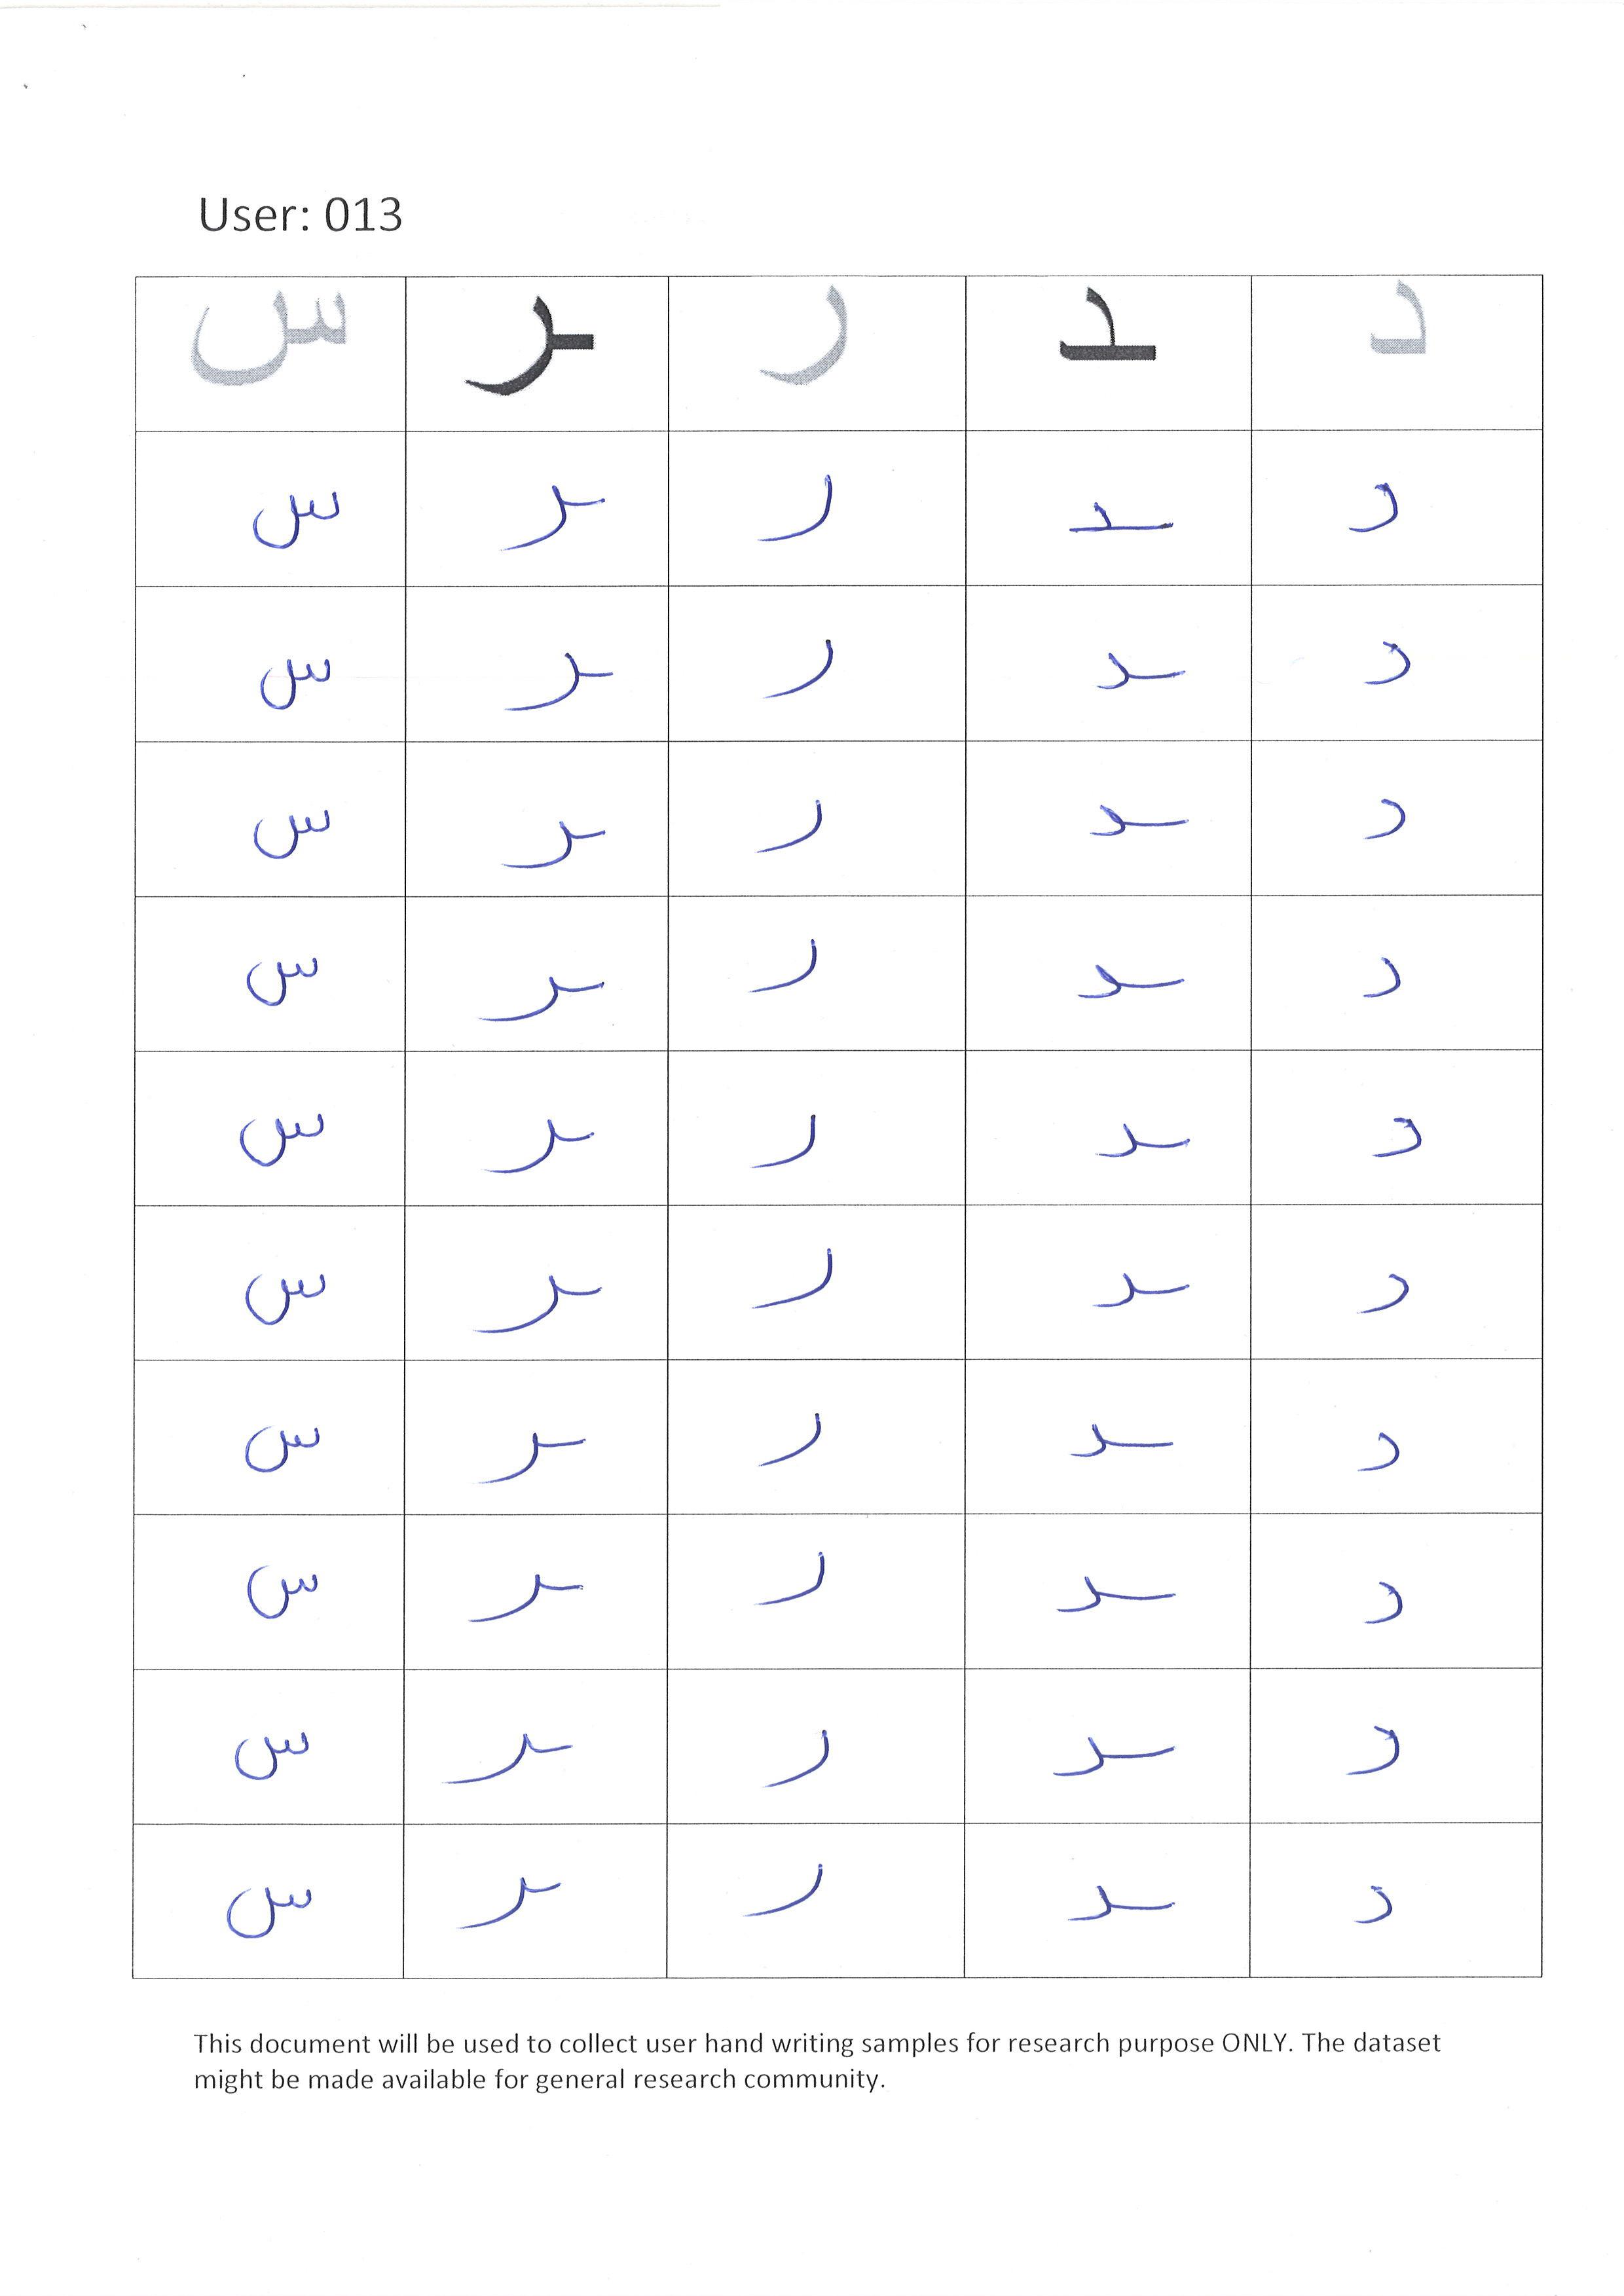 User: 013
د ـد ر ـر س
د ـد ر ـر س
د ـد ر ـر س
د ـد ر ـر س
د ـد ر ـر س
د ـد ر ـر س
د ـد ر ـر س
د ـد ر ـر س
د ـد ر ـر س
د ـد ر ـر س
د ـد ر ـر س
This document will be used to collect user hand writing samples for research purpose ONLY. The dataset
might be made available for general research community.